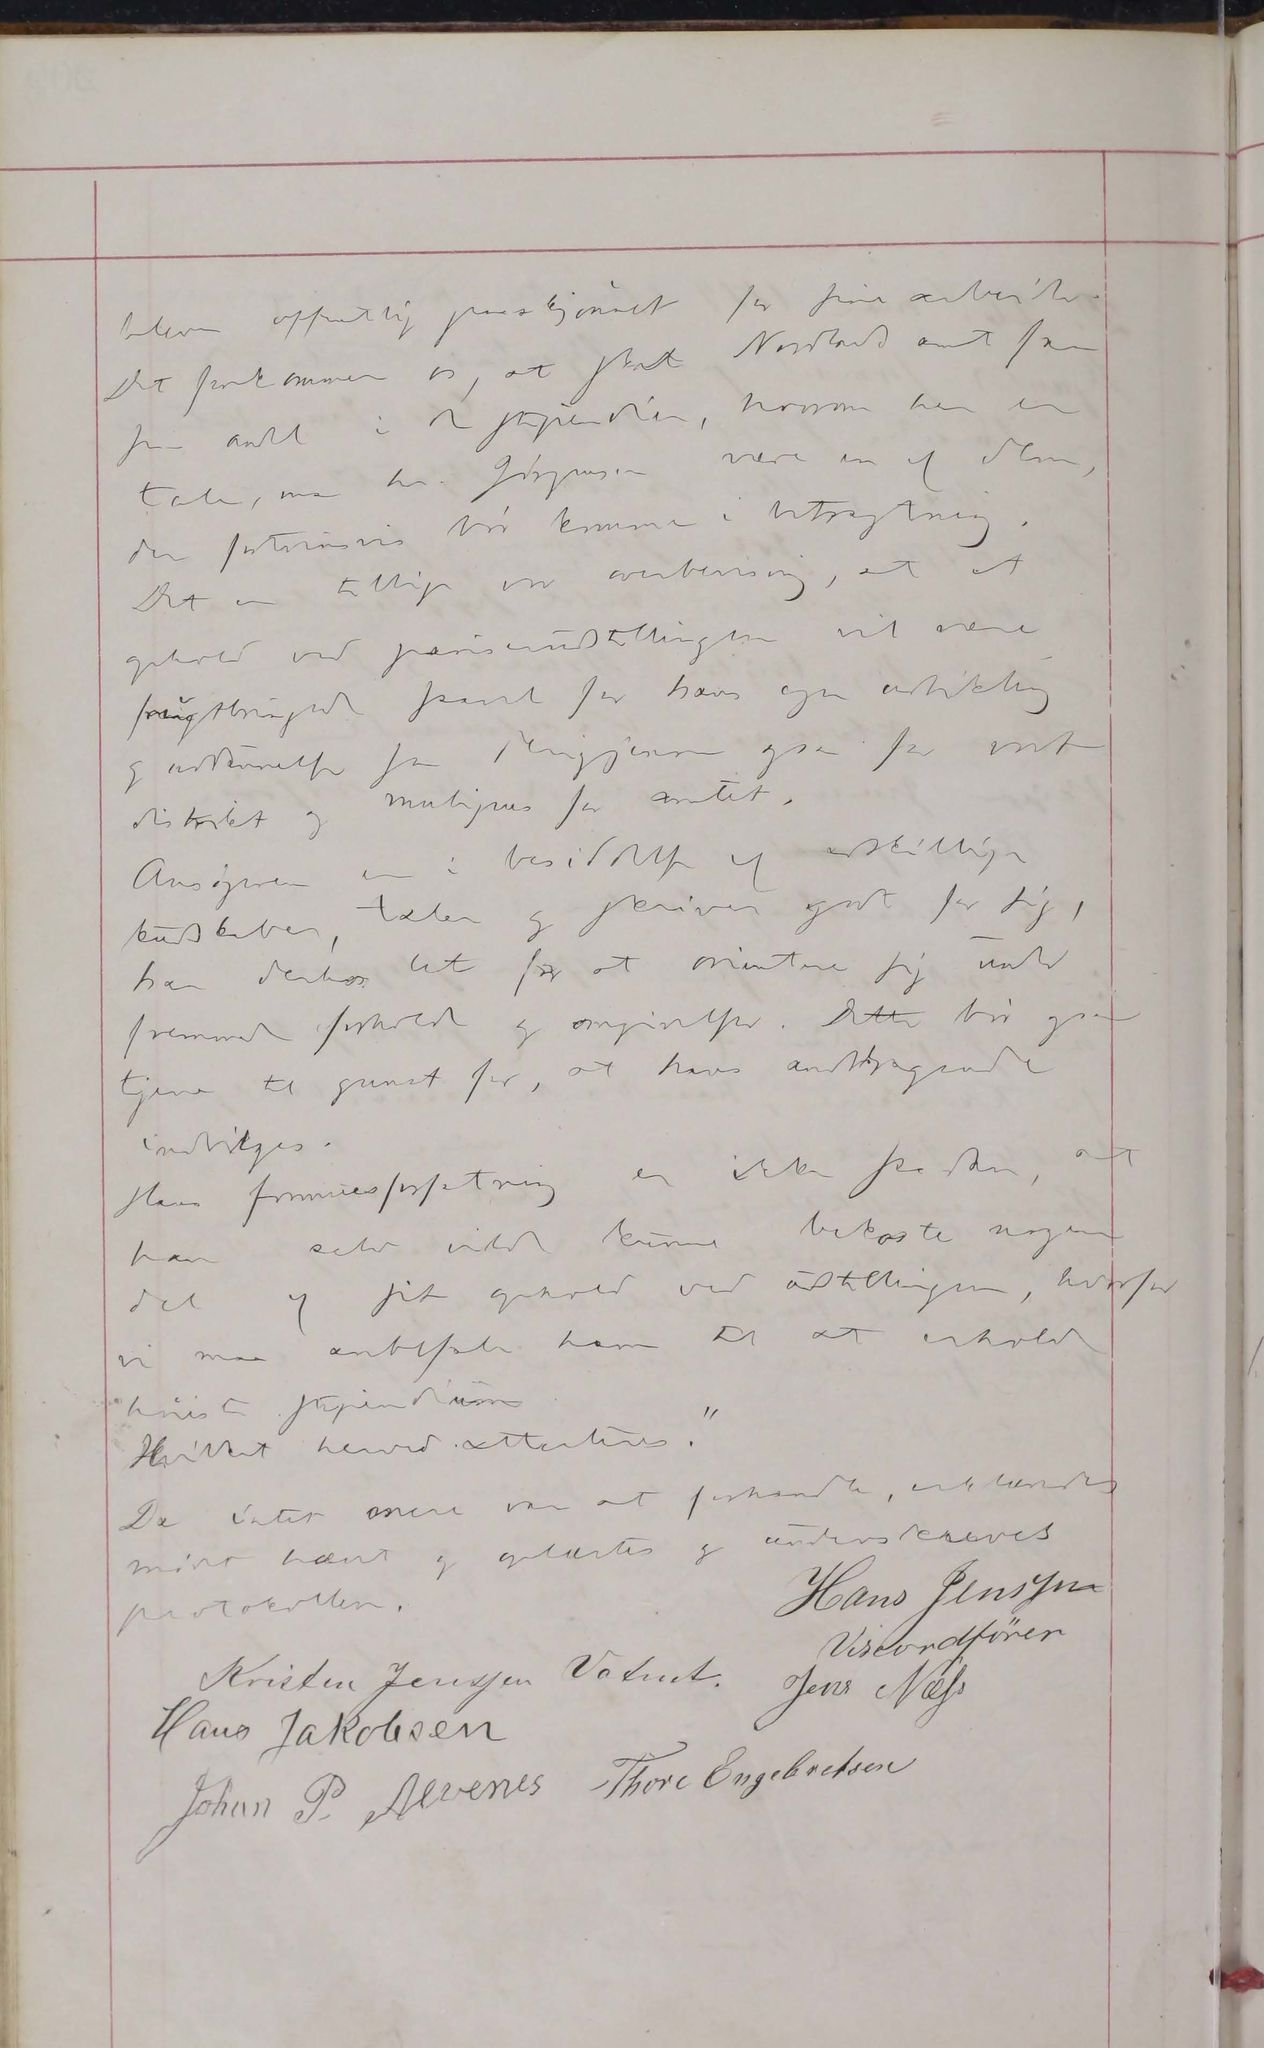 bleven offentlig paaskjönnet for sine arbeider.
Det forekommer os, at skal Nordlands amt faa
sin andel i de stipendier, hvorom her er
tale, maa hr. Jörgensen være en af dem,
der fortrinsvis bör komme i betragtning.
Det er tillige vor overbevisning, at et
ophold ved pariserudstillingen vil være
frugtbringende saavel for hans egen udvikling
og uddannelse som derigjennem ogsaa for vort
distrikt og muligens for amtet.
Ansögeren er i besiddelse af adskillige
kundskaber, taler og skriver godt for sig,
har derhos let for at orientere sig under
fremmede forholde og omgivelser. Dette bör ogsaa
tjene til gunst for, at hans andragende
indvilges.
Hans formuesforfatning er ikke saadan, at
han selv vilde kunne bekoste nogen
del af sit ophold ved udstillingen, hvorfor
vi maa anbefale ham til at erholde
höieste stipendium
Hvilket herved attesteres."
Da intet mere var at forhandle, erklæredes
mödet hævet og oplæstes og underskreves
protokollen.
Hans Jenssen
Viseordförer
Kristen Jenssen Vatnet. Jens Næss
Hans Jakobsen
Johan P. Alvenes Thore Engebretsen